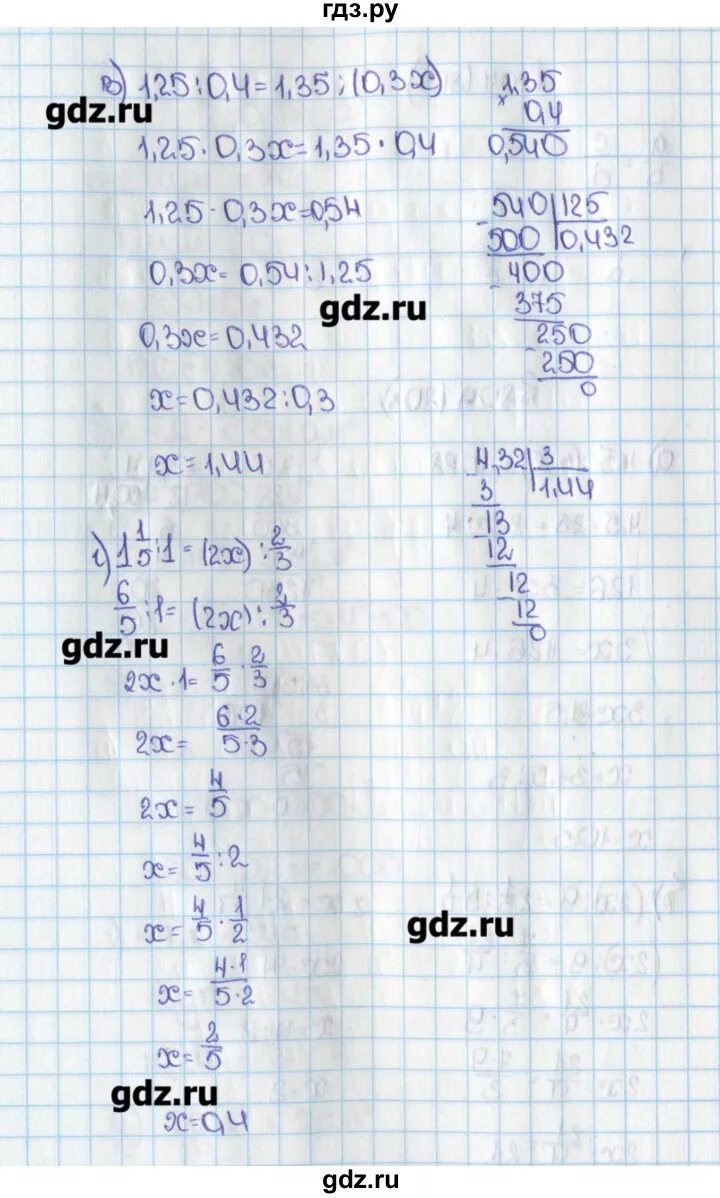 гдз.ру
в) 1,25 : 0,4 = 1,35 : (0,3x)
gdz.ru
1,25 · 0,3x = 1,35 · 0,4
1,25 · 0,3x = 0,54
0,3x = 0,54 : 1,25
0,3x = 0,432
x = 0,432 : 0,3
x = 1,44
× 1,35
0,4
0,540
- 540 | 125
500 | 0,432
- 400
375
- 250
250
0
gdz.ru
4,32 | 3
3 | 1,44
- 13
12
- 12
12
0
г) 1 1/5 : 1 = (2x) : 2/3
6/5 : 1 = (2x) : 2/3
gdz.ru
2x · 1 = 6/5 · 2/3
2x = 6·2/5·3
2x = 4/5
x = 4/5 : 2
x = 4/5 · 1/2
gdz.ru
x = 4·1/5·2
x = 2/5
gdz.ru
x = 0,4
gdz.ru